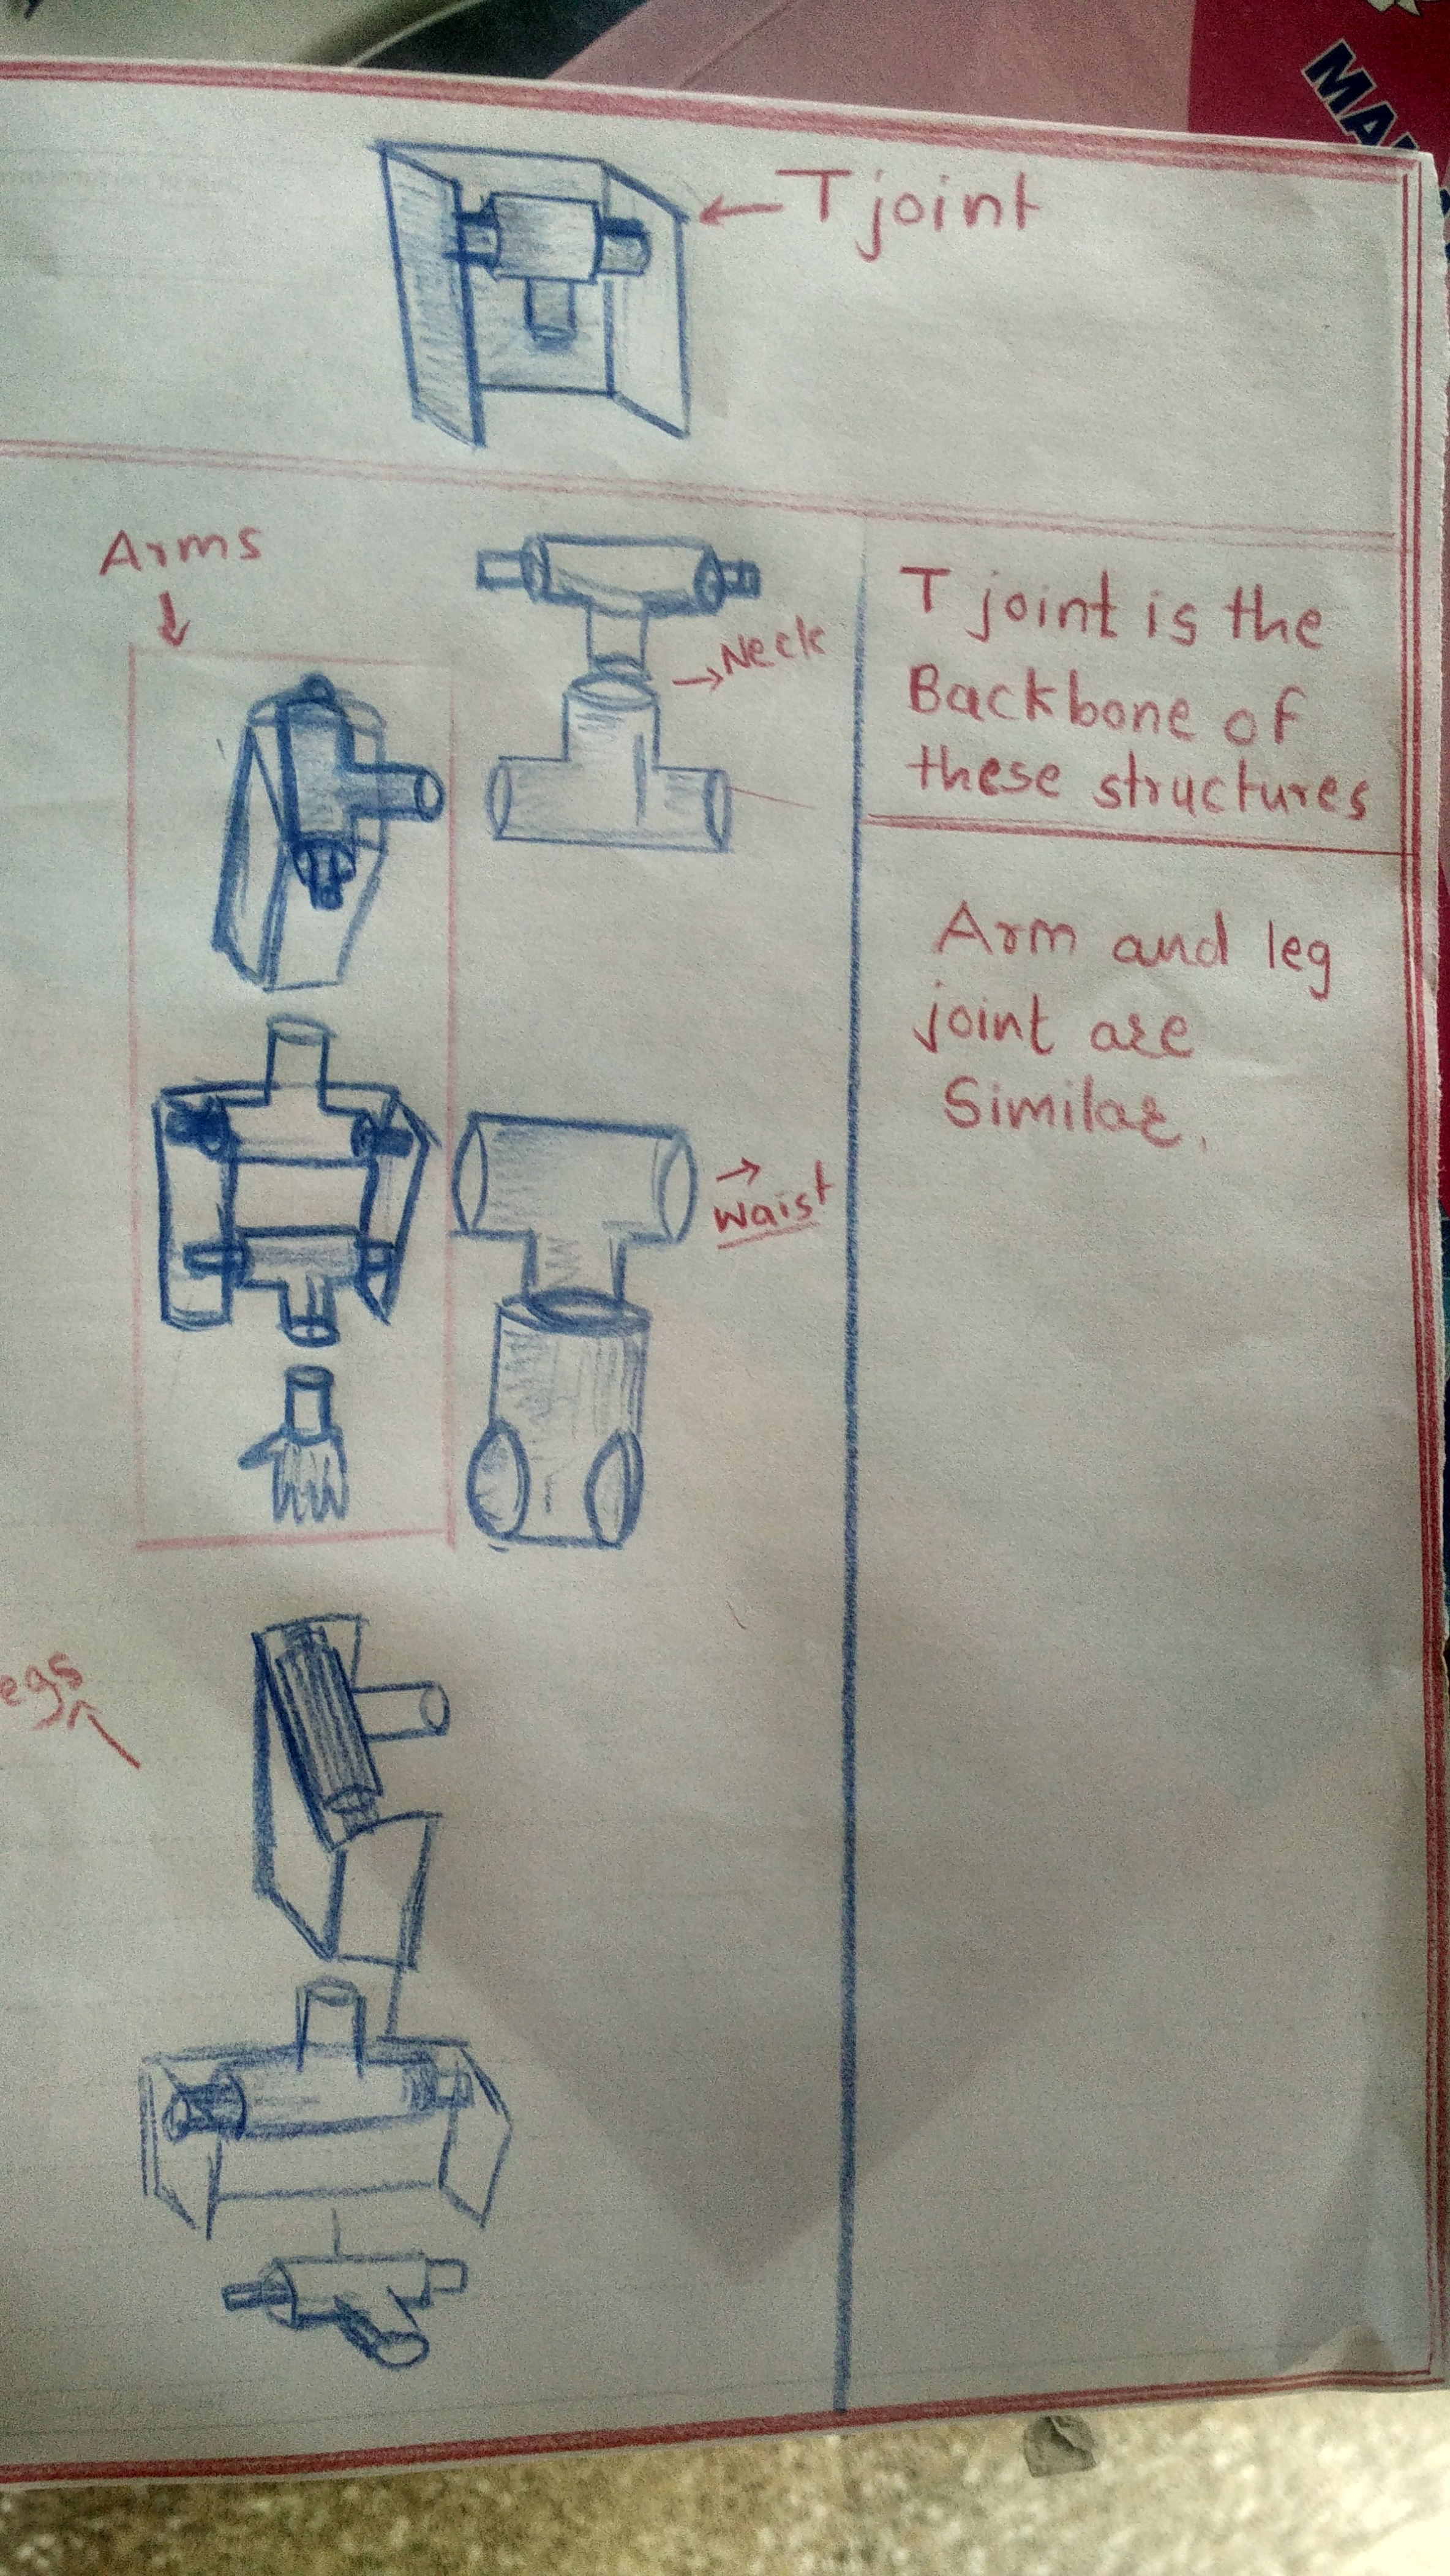 T joint
Arms
Neck
T joint is the
Backbone of
these structures
Arm and leg
joint are
Similar.
Waist
egs